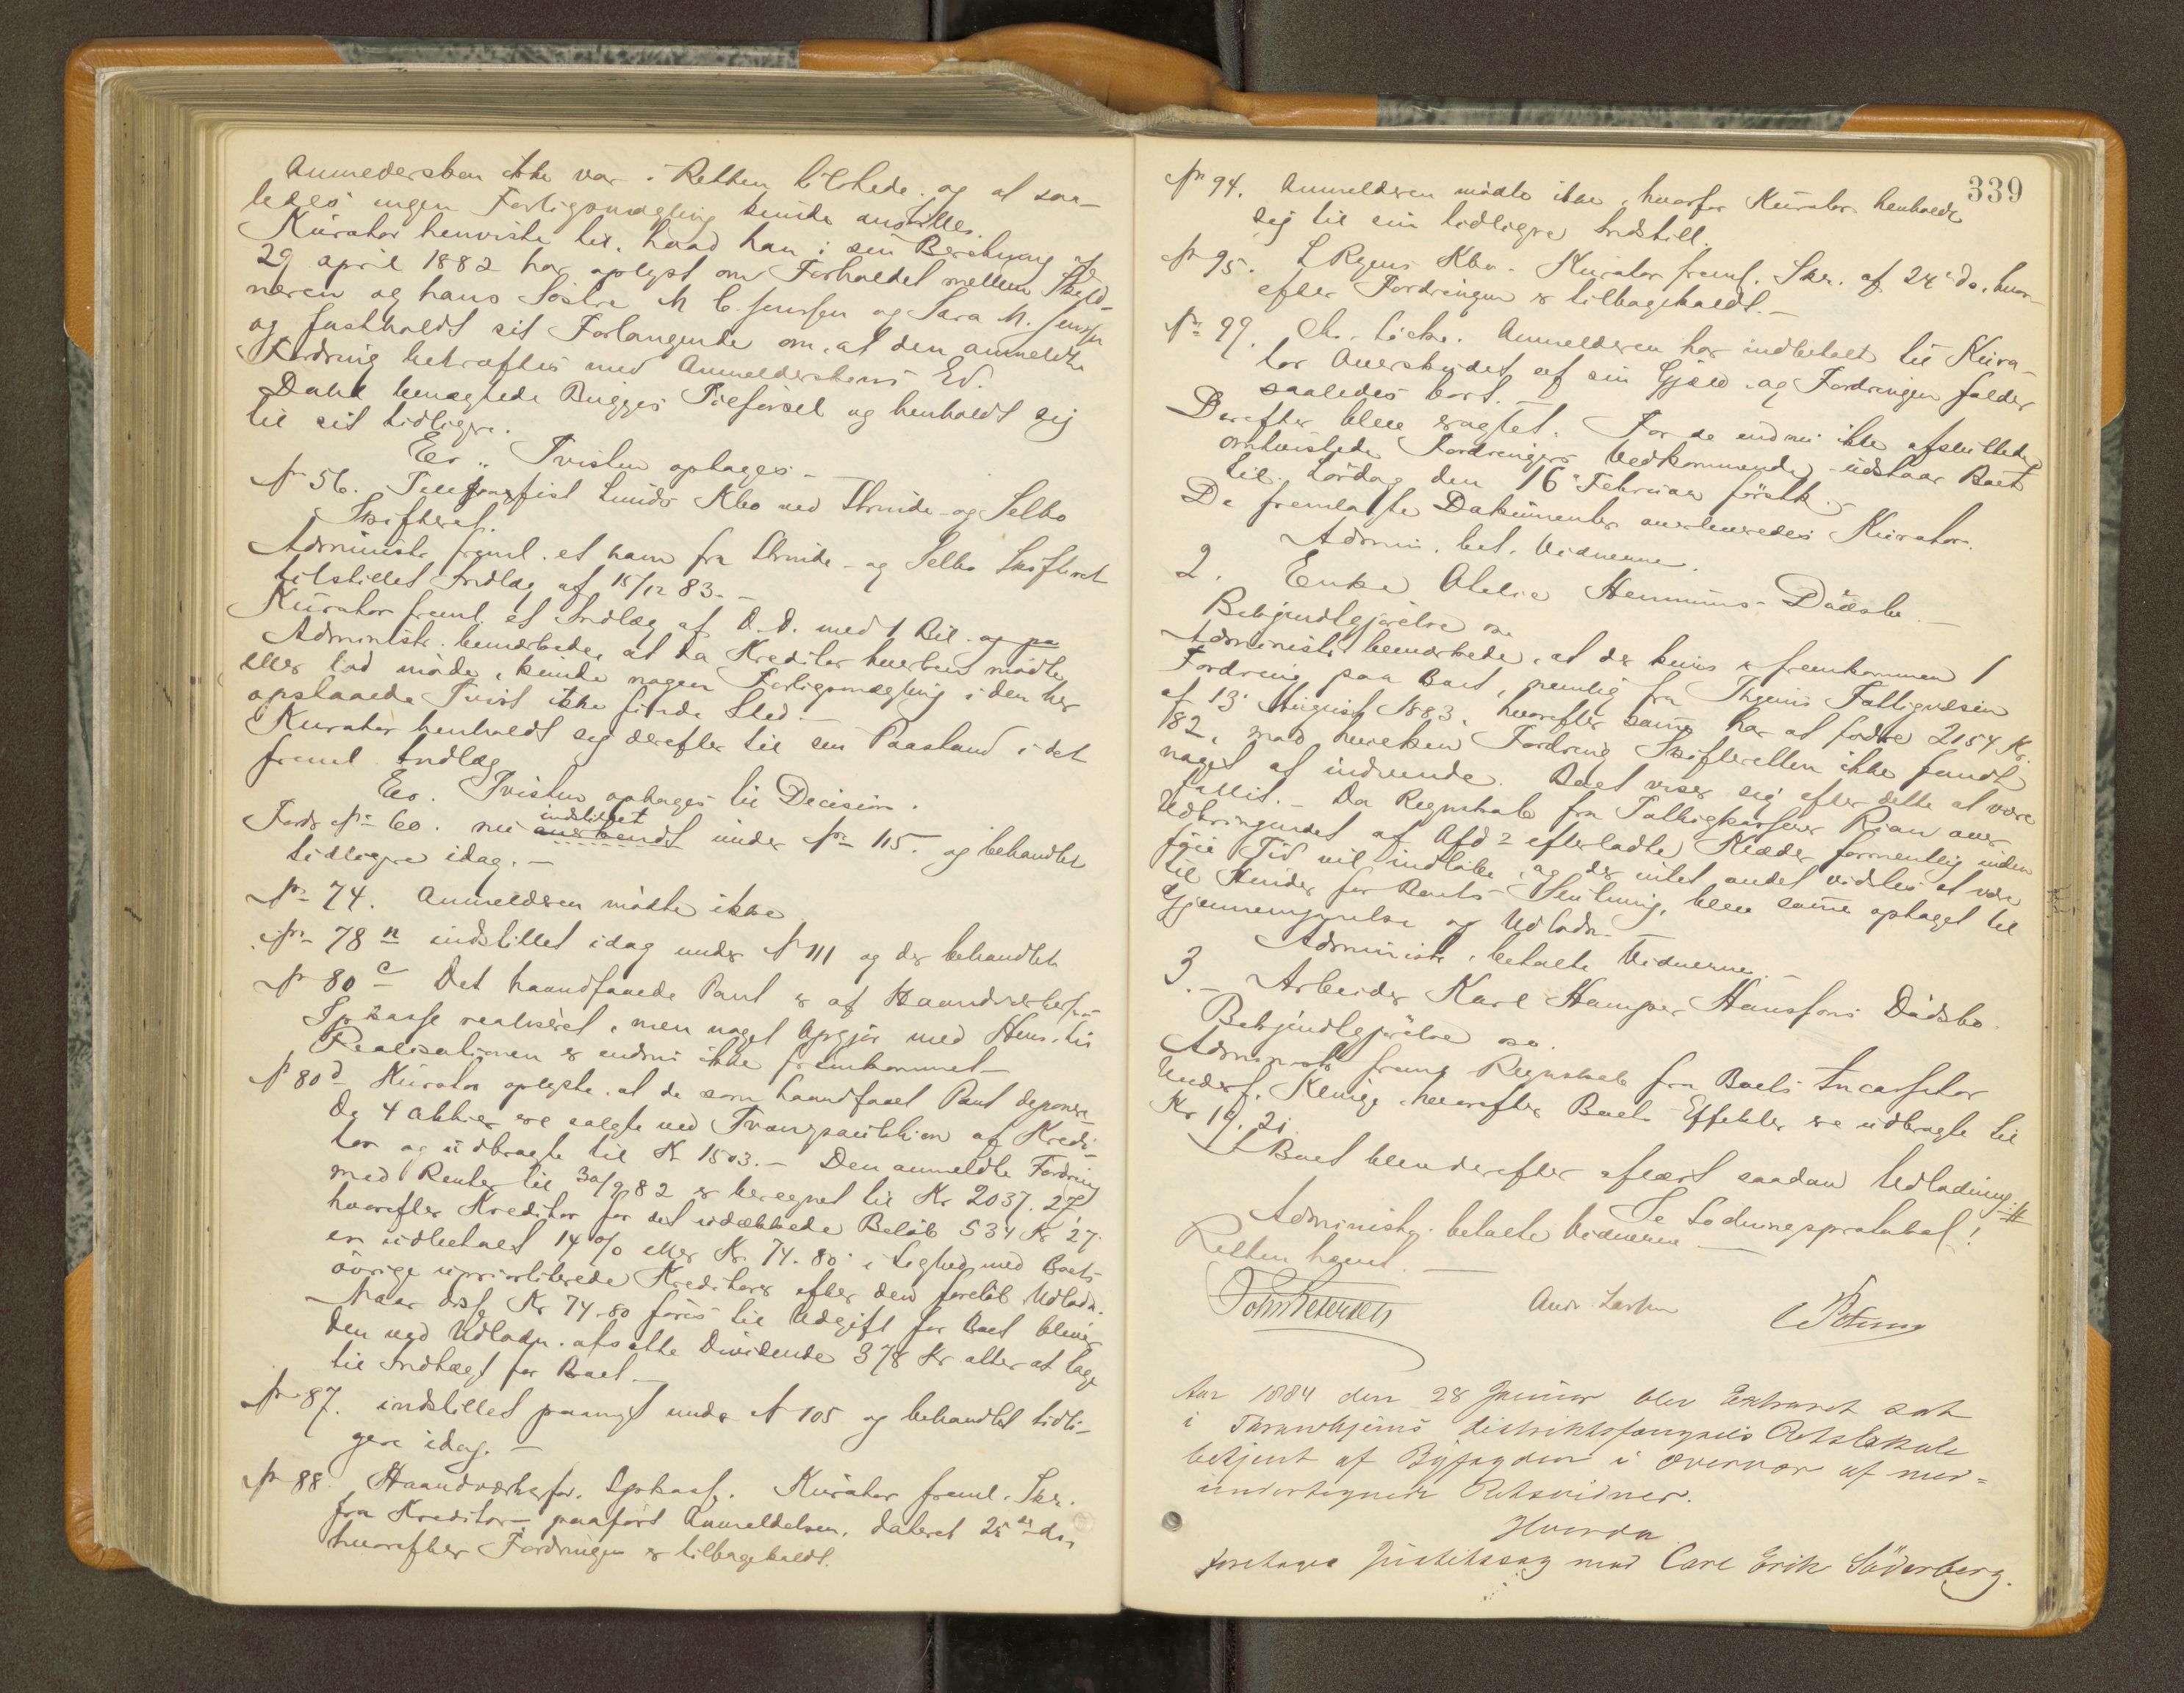 Anmeldersken ikke var i Retten tilstede og at saa-
ledes ingen Forligsmægling kunde anstilles.
Kurator henviste til, hvad han i sin Beretning af
29 april 1882 har oplyst om Forholdet mellem Skyld-
neren og hans Søstre M C. Jenssen og Sara M. Jenssen
og fastholdt sit Forlangende om, at den anmeldte
Fordring bekræftes med Anmelderskens Ed.
Dahl benægtede Brigges Tilførsel og henholdt sig
til sit tidligere.
Er: Tvisten optages –
Nr 56. Telegrafist Lunds Kbo ved Strinde- og Selbo
Skifteret.
Administr freml. et ham fra Strinde- og Selbo Skifteret
tilstillet Indlæg af 15/12 83. –
Kurator freml. et Indlæg af D.D. med 1 Bil. og pa
Administr. bemærkede, at da Kreditor hverken mødte
eller lod møde, kunde nogen Forligsmægling i den her
opstaaede Tvist ikke finde Sted. –
Kurator henholdt sig derefter til sin Paastand i det
freml Indlæg
Er. Tvisten optages til Decision.
indstillet
Fordr Nr 60. nu anerkendt under Nr 115. og behandlet
tidligere idag. –
Nr 74. Anmelderen mødte ikke
Nr 78 n indstillet idag under Nr 111 og der behandlet
Nr 80 c Det haandfaaede Pant er af Haandværkerfor
Spkasse realiseret, men noget Opgjør med Hens. til
Realisationen er endnu ikke fremkommet –
Nr 80 d Kurator oplyste, at de som haandfaaet Pant depone-
de 4 Aktier ere solgte ved Tvangsauktion af Kredi-
tor og udbragte til Kr 1503. – Den anmeldte Fordring
med Renter til 30/9 82 er beregnet til Kr 2037.27
hvorefter Kreditor for det udækkede Beløb 534 Kr 27
er udbetalt 14% eller Kr. 74.80 i Lighed med Boets
øvrige uprioriterede Kreditorer efter den foreløb Udlodn.
Naar disse Kr 74.80 føres til Udgift for Boet bliver
den ved Udlodn. afsatte Dividende 378 Kr atter at tage
til Indtægt for Boet. –
Nr 87. indstillet paanyt under Nr 105 og behandlet tidli-
gere idag. –
Nr 88. Haandværkerfor. Spkasse. Kurator freml. Skr.
fra Kreditor, paaført Anmeldelsen, dateret 25 ds
hvorefter Fordringen er tilbagekaldt.
339
Nr 94. Anmelderen mødte ikke, hvorfor Kurator henholdt
sig til sin tidligere Indstill.
Nr 95. L Ryens Kbo – Kurator freml. Skr. af 24 ds. hvor-
efter Fordringen er tilbagekaldt. –
Nr 99. Chr. Anmelderen har indbetalt til Kura-
tor Overskudet af sin Gjæld og Fordringen falder
saaledes bort. –
Derefter blev eragtet: For de endnu ikke afsluttede
omtvistede Fordringers Vedkommende udstaar Boet
til Lørdag den 16 Februar førstk. –
De fremlagte Dokumenter overleveredes Kurator.
Admin. bet. Vidnerne.
2. Enke Olelie Hemmings Dødsbo. –
Bekjendtgjørelse osv
Administr bemærkede, at der kuns er fremkommen 1
Fordring paa Boet, nemlig fra Thjems Fattigvæsen
af 13 August 1883, hvorefter samme har at fordre 2154 Kr.
182, mod hvilken Fordring Skifteretten ikke fandt
noget at indvende. Boet viser sig efter dette at være
fallit. – Da Regnskab fra Fattigkasserer Rian over
Udbringendet af Afdøs efterladte Klæder formentlig inden
føie Tid vil indløbe, og der intet andet vidstes at være
til Hinder for Boets Slutning, blev samme optaget til
Gjennemgjørelse og Udlodn. –
Administr. betalte Vidnerne. –
3. – Arbeider Karl Hampus Hanssons Dødsbo.
Bekjendtgjørelse osv.
Administr freml Regnskab fra Boets Incassator
Underf. Klinge, hvorefter Boets Effekter ere udbragte til
Kr 19.21.
Boet blev derefter afleært saadan Udlodning: #
# Se Lodningsprotokol!
Administr. betalte Vidnerne –
Retten hævet. –
John Petersen   Andr Larsen
Aar 1884 den 28 Januar blev Extraret sat
i Throndhjems distriktsfængsels Retslokale
betjent af Byfogden i Overvær af med-
undertegnede Retsvidner.
Hvorda
foretages Justitssag mod Carl Erik Söderberg.